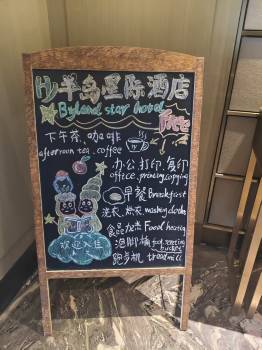 半岛星际酒店
Byland star hotel
Free
下午茶、咖啡
afternoon tea、coffee
办公、打印、复印
office、printing、copying
早餐Breakfast
洗衣、烘衣、washing clothes
食品加热 Food heating
泡脚桶 foot soaking
bucket
跑步机 treadmill
欢迎入住